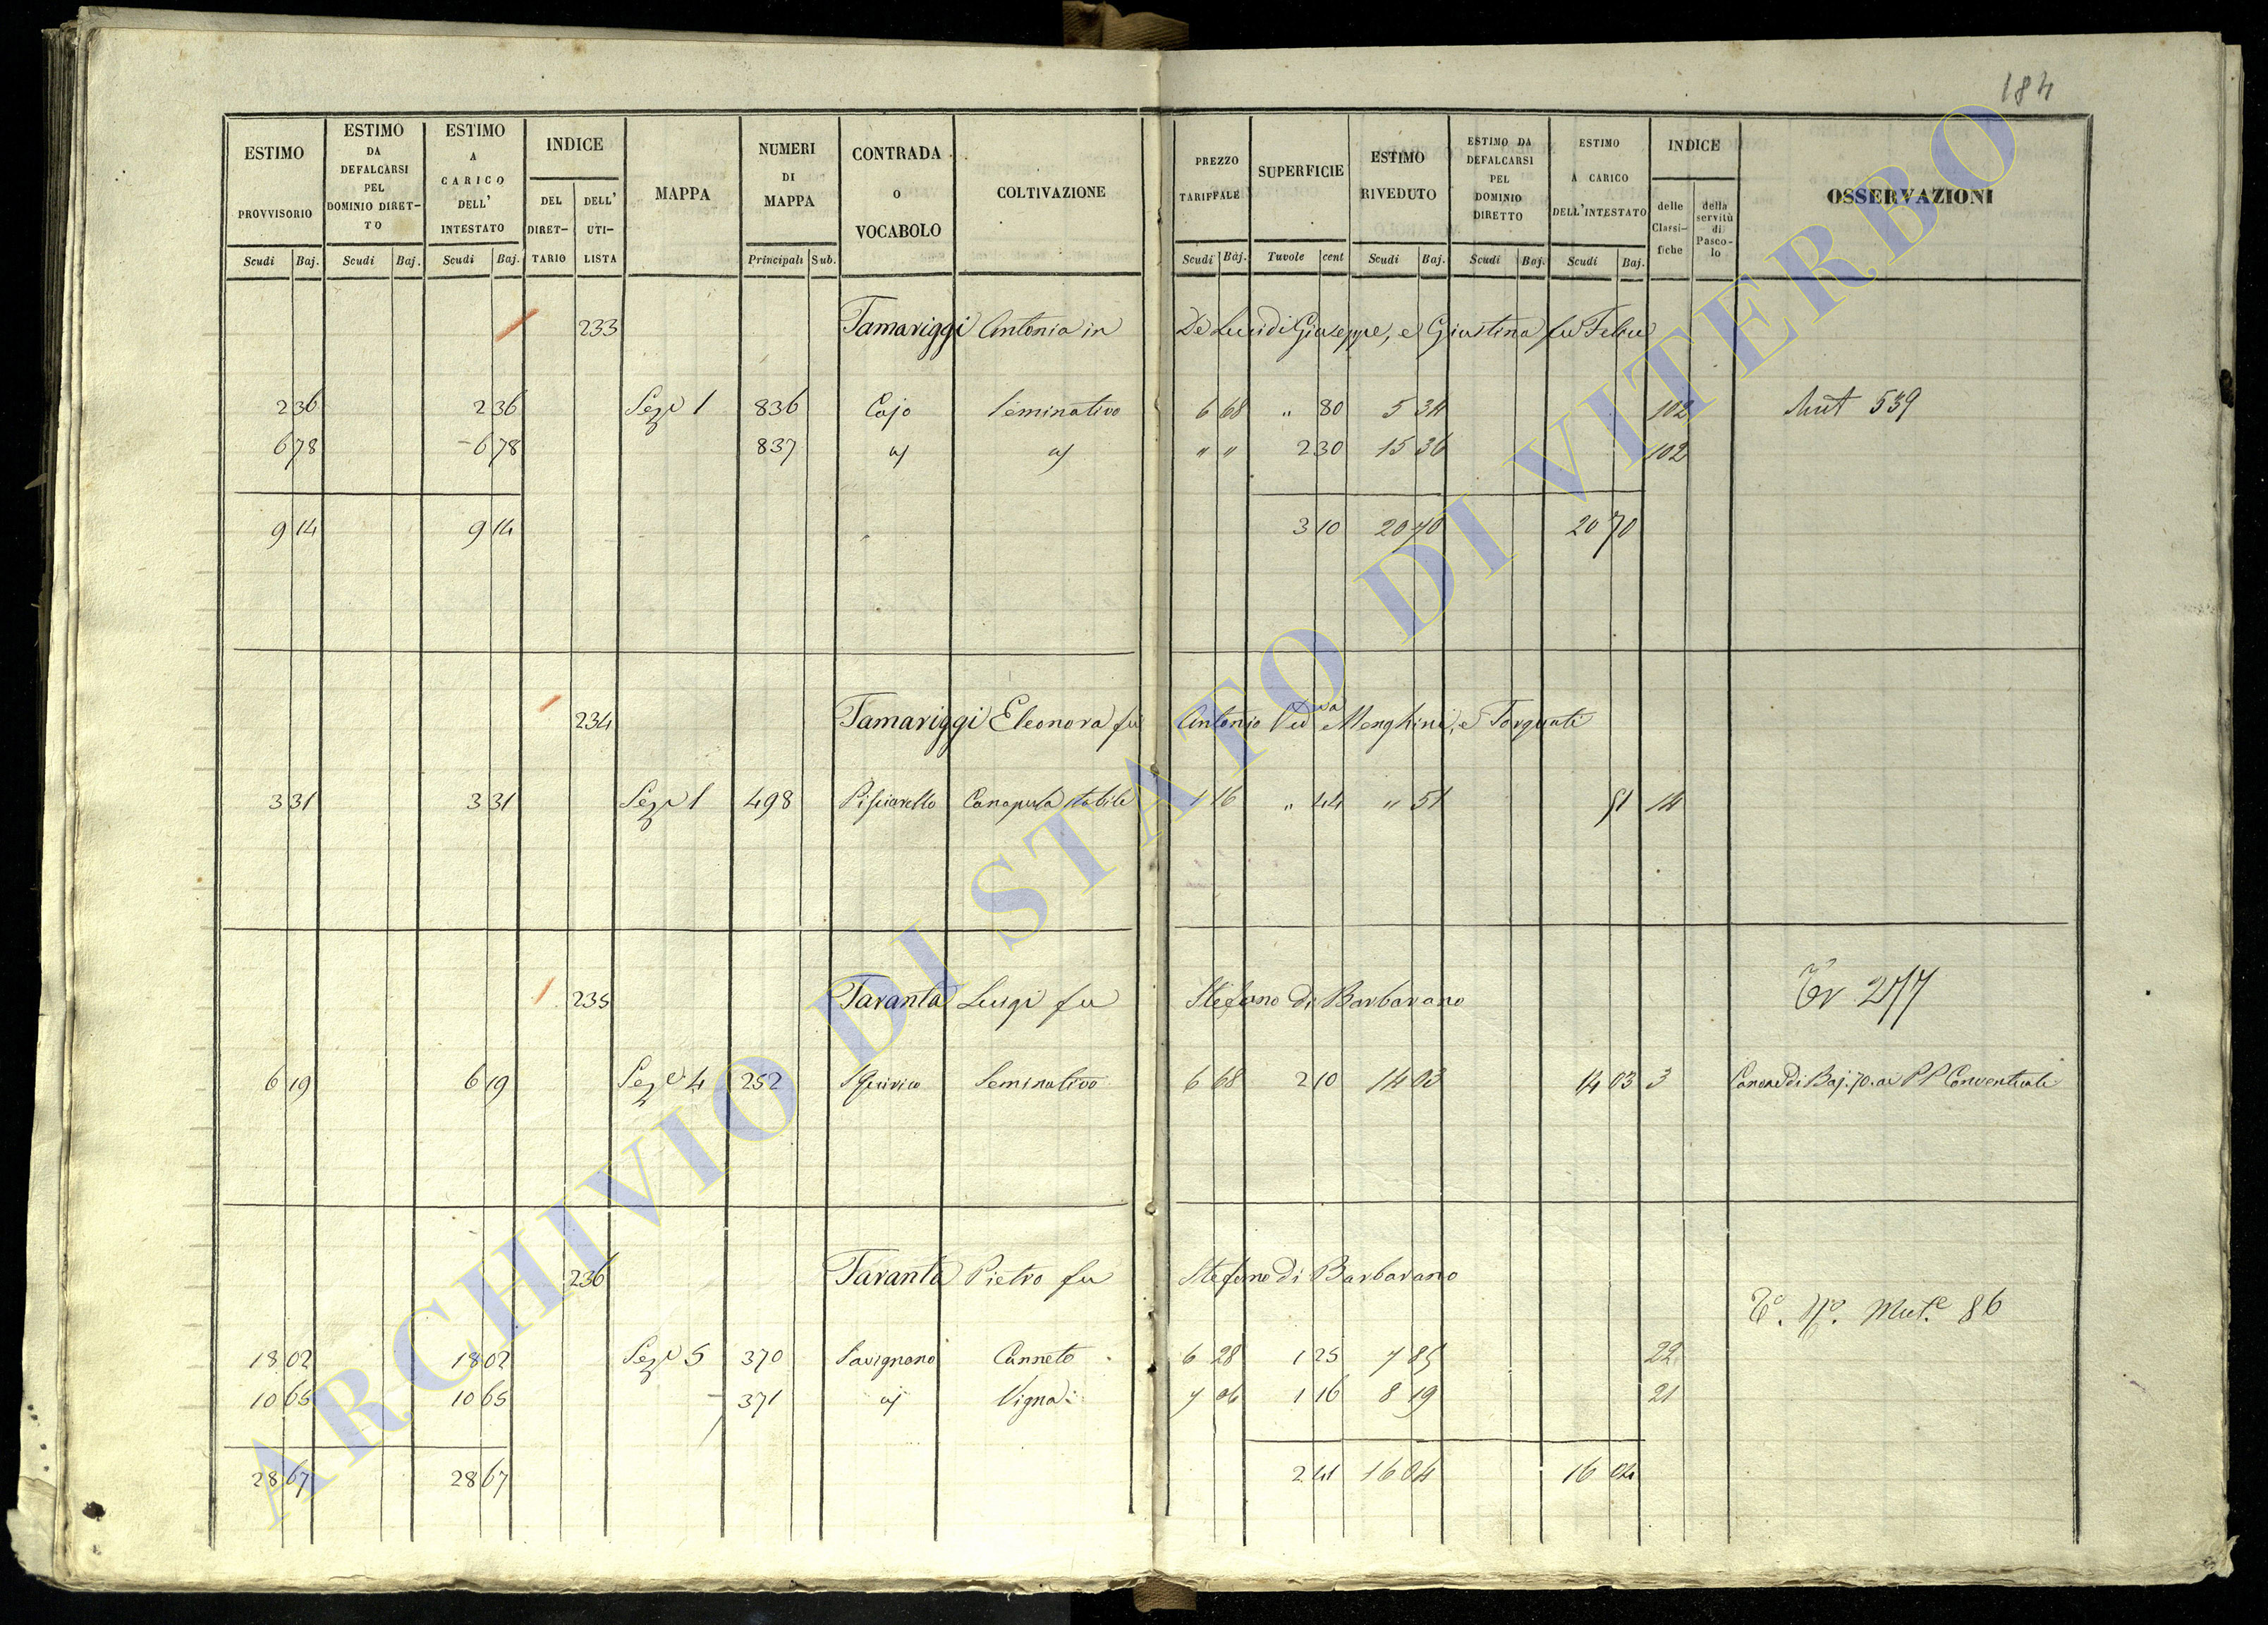 184
ESTIMO PROVVISORIO Scudi Baj.
ESTIMO DA DEFALCARSI PEL DOMINIO DIRETTO Scudi Baj.
ESTIMO A CARICO DELL' INTESTATO Scudi Baj.
INDICE DEL DIRETTARIO DELL' UTILISTA
MAPPA
NUMERI DI MAPPA Principali Sub.
CONTRADA O VOCABOLO
COLTIVAZIONE
PREZZO TARIFFALE Scudi Baj.
SUPERFICIE Tavole cent
ESTIMO RIVEDUTO Scudi Baj.
ESTIMO DA DEFALCARSI PEL DOMINIO DIRETTO Scudi Baj.
ESTIMO A CARICO DELL'INTESTATO Scudi Baj.
INDICE delle Classifiche della servitù di Pascolo
OSSERVAZIONI
233 Tamariggi Antonia in De Lucidi Giuseppe, e Giustina fu Felice
2 36 2 36 Sez. 1 836 Cajo Seminativo 6 68 " 80 5 34 102 Mut 539
6 78 6 78 837 " " 2 30 15 36 102
9 14 9 14 3 10 20 70 20 70
234 Tamariggi Eleonora fu Antonio Ved.va Menghini, e Torquati
3 31 3 31 Sez. 1 498 Pisciarello 1 16 " 44 " 51 51 14
235 Taranta Luigi fu Stefano di Barbarano Tr 277
6 19 6 19 Sez. 4 252 S Quirico Seminativo 6 68 2 10 14 03 14 03 3 Canone di Baj. 70. ai PP Conventuali
236 Taranta Pietro fu Stefano di Barbarano
Mut.e 86
18 02 18 02 Sez. 5 370 Savignano Canneto 6 28 1 25 7 85 22
10 65 10 65 371 Vigna 7 06 1 16 8 19 21
28 67 28 67 2 41 16 04 16 04
ARCHIVIO DI STATO DI VITERBO